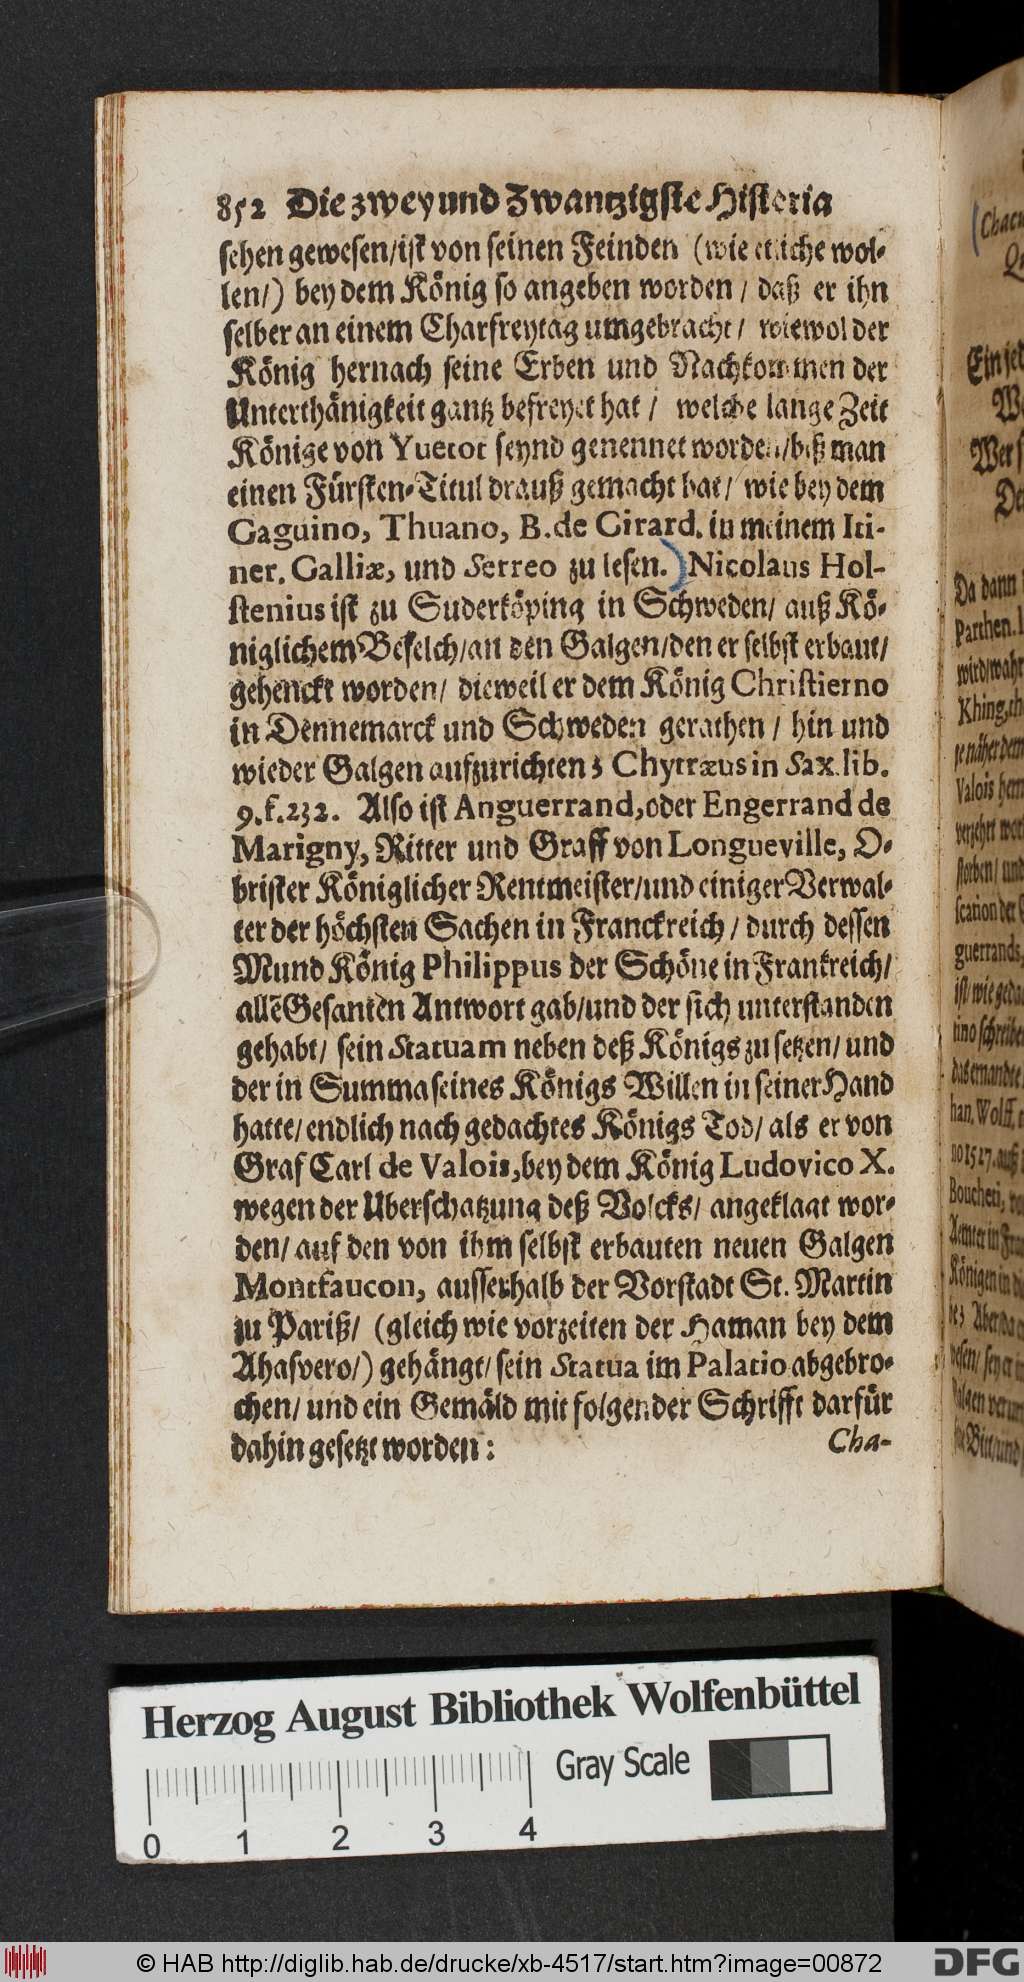 852 Die zwey und Zwantzigste Historia
sehen gewesen/ist von seinen Feinden (wie etliche wol-
len/) bey dem König so angeben worden / daß er ihn
selber an einem Charfreytag umgebracht / wiewol der
König hernach seine Erben und Nachkommen der
Unterthänigkeit gantz befreyet hat / welche lange Zeit
Könige von Yvetot seynd genennet worden/biß man
einen Fürsten-Titul drauß gemacht hat/ wie bey dem
Gaguino, Thuano, B. de Girard. in meinem Iti-
ner. Galliæ, und Serreo zu lesen.) Nicolaus Hol-
stenius ist zu Suderköping in Schweden/ auß Kö-
niglichem Befelch/an den Galgen/den er selbst erbaut/
gehenckt worden/ dieweil er dem König Christierno
in Dennemarck und Schweden gerathen / hin und
wieder Galgen aufzurichten; Chytræus in Sax. lib.
9. f. 232. Also ist Anguerrand, oder Engerrand de
Marigny, Ritter und Graff von Longueville, O-
brister Königlicher Rentmeister/und einiger Verwal-
ter der höchsten Sachen in Franckreich / durch dessen
Mund König Philippus der Schöne in Frankreich/
allē Gesanten Antwort gab/und der sich unterstanden
gehabt/ sein Statuam neben deß Königs zu setzen/ und
der in Summa seines Königs Willen in seiner Hand
hatte/ endlich nach gedachtes Königs Tod/ als er von
Graf Carl de Valois, bey dem König Ludovico X.
wegen der Uberschatzung deß Volcks/ angeklagt wor-
den/ auf den von ihm selbst erbauten neuen Galgen
Montfaucon, ausserhalb der Vorstadt St. Martin
zu Pariß/ (gleich wie vorzeiten der Haman bey dem
Ahasvero/) gehängt/ sein Statua im Palatio abgebro-
chen/ und ein Gemäld mit folgender Schrifft darfür
dahin gesetzt worden:
Cha-
(Chacu
Ein jed
Wer s
De
Da dann
Parthen.
Khing,
je näher dem
Valois
verzehrt
storben/ und
guerrands,
han. Wolff.
no 1527. auß
Boucheri,
Königen in
Herzog August Bibliothek Wolfenbüttel
Gray Scale
0 1 2 3 4
© HAB http://diglib.hab.de/drucke/xb-4517/start.htm?image=00872
DFG